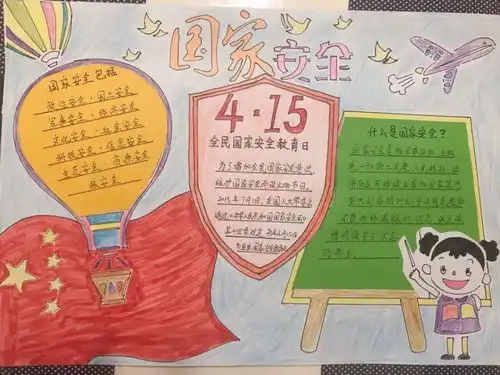 国家安全
国家安全包括
政治安全·国土安全
军事安全·经济安全
文化安全·社会安全
科技安全·信息安全
生态安全·资源安全
核安全
4·15
全民国家安全教育日
为了增加全民国家安全意识
维护国家安全而设立的节日。
2015年7月1日,全国人大常委会
通过的《中华人民共和国国家安全法》
第十四条规定,每年4月15日
为全民国家安全教育日
什么是国家安全?
国家安全是指国家政权、主权、
统一和领土完整、人民福祉、经
济社会可持续发展和国家其他
重大利益相对处于没有危险和
不受内外威胁的状态,以及保
障持续安全状态
的能力。